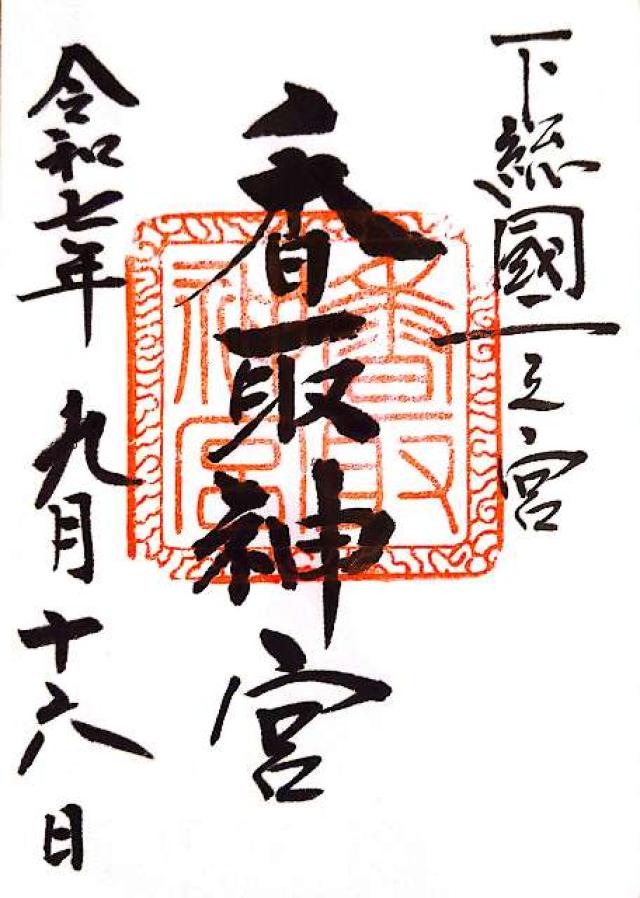 下総國一之宮
香取神宮
香取神宮
令和七年九月十六日